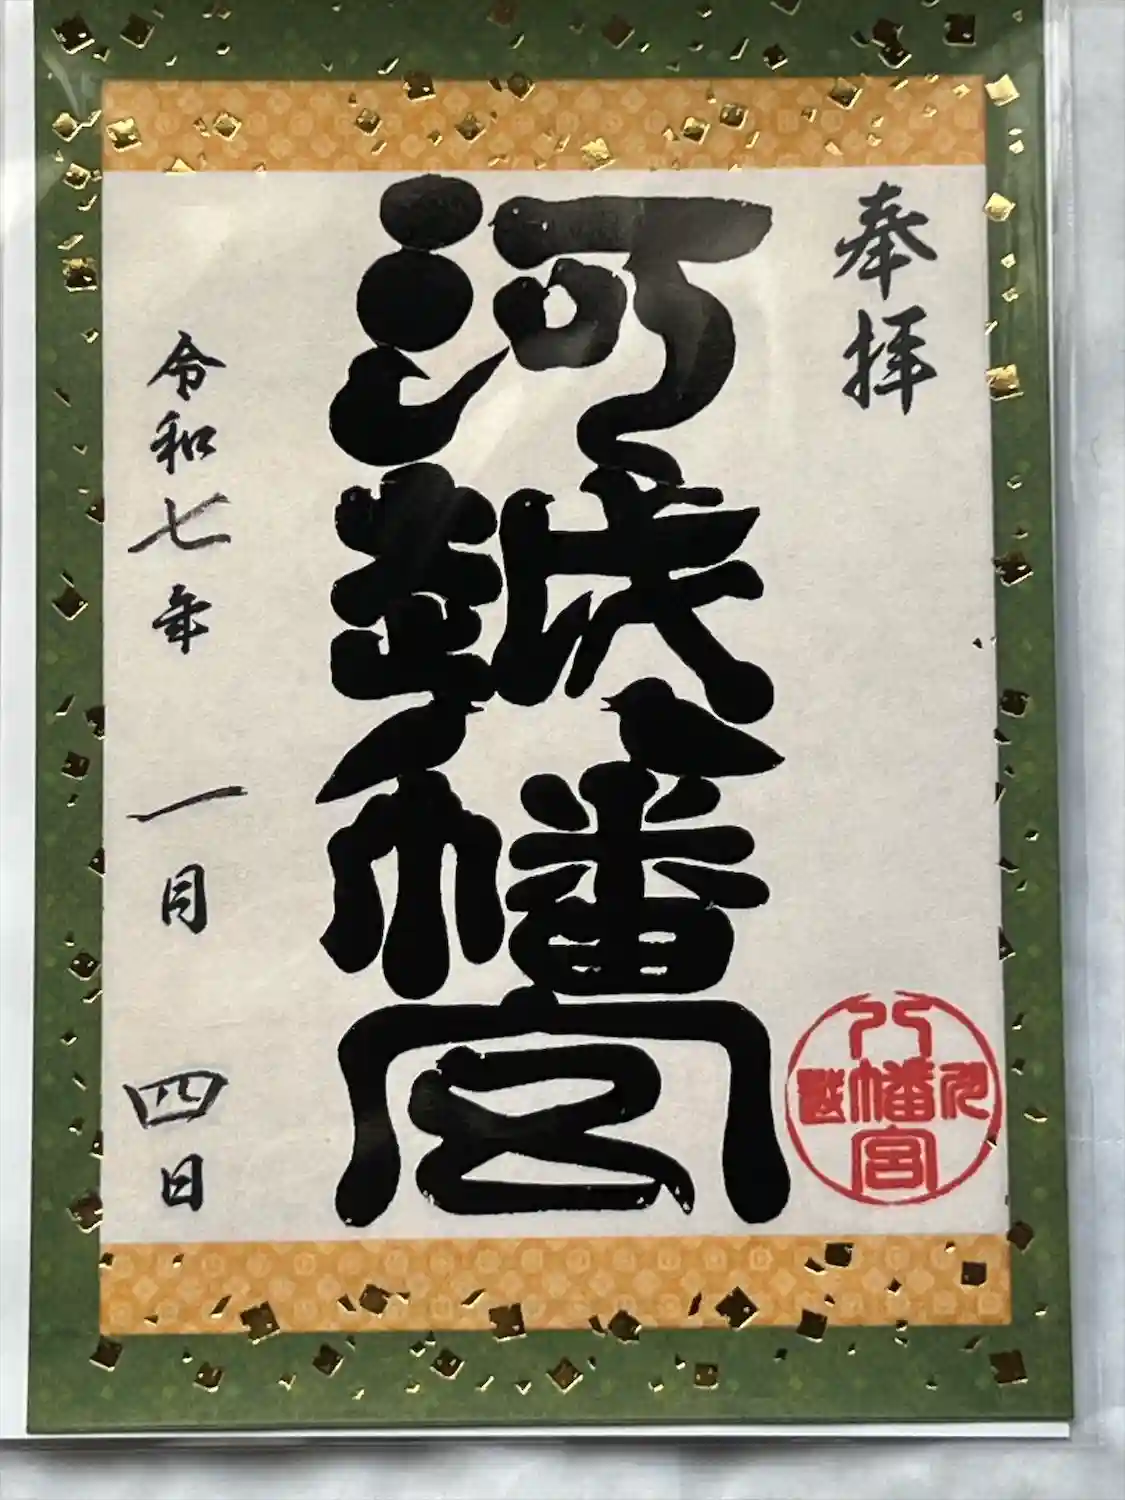 奉拝
河越八幡宮
川越八幡宮
令和七年一月四日